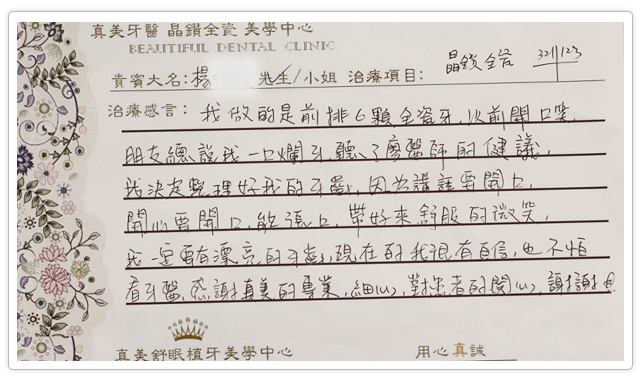 真美牙醫 晶鑽全瓷 美學中心
BEAUTIFUL DENTAL CLINIC
貴賓大名:楊 先生/小姐 治療項目: 晶鑽全瓷 321|123
治療感言:我做的是前排6顆全瓷牙,以前開口笑,
朋友總說我一口爛牙,聽了廖醫師的健議,
我決定整理好我的牙齒,因為講話要開口,
開心要開口,能張口,帶好來舒服的微笑,
我一定要有漂亮的牙齒,現在的我很有自信,也不怕
看牙醫,感謝真美的專業,細心,對患者的關心,謝謝
真美舒眠植牙美學中心 用心真誠